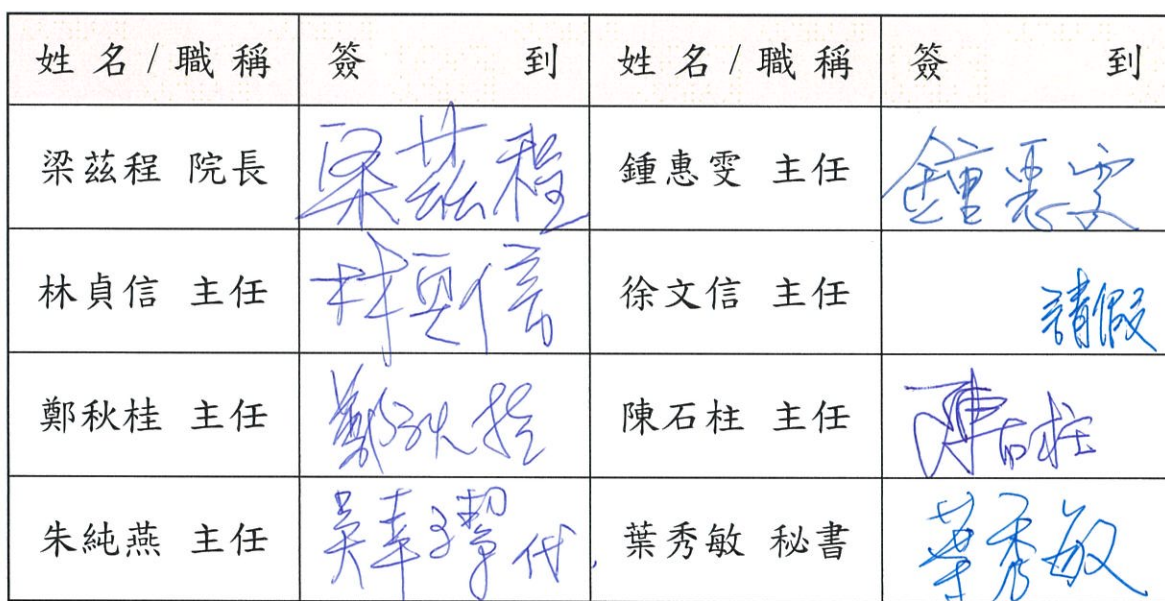 姓名/職稱 簽到 姓名/職稱 簽到
梁茲程 院長 梁茲程 鍾惠雯 主任 鍾惠雯
林貞信 主任 林貞信 徐文信 主任 請假
鄭秋桂 主任 鄭秋桂 陳石柱 主任 陳石柱
朱純燕 主任 代 葉秀敏 秘書 葉秀敏